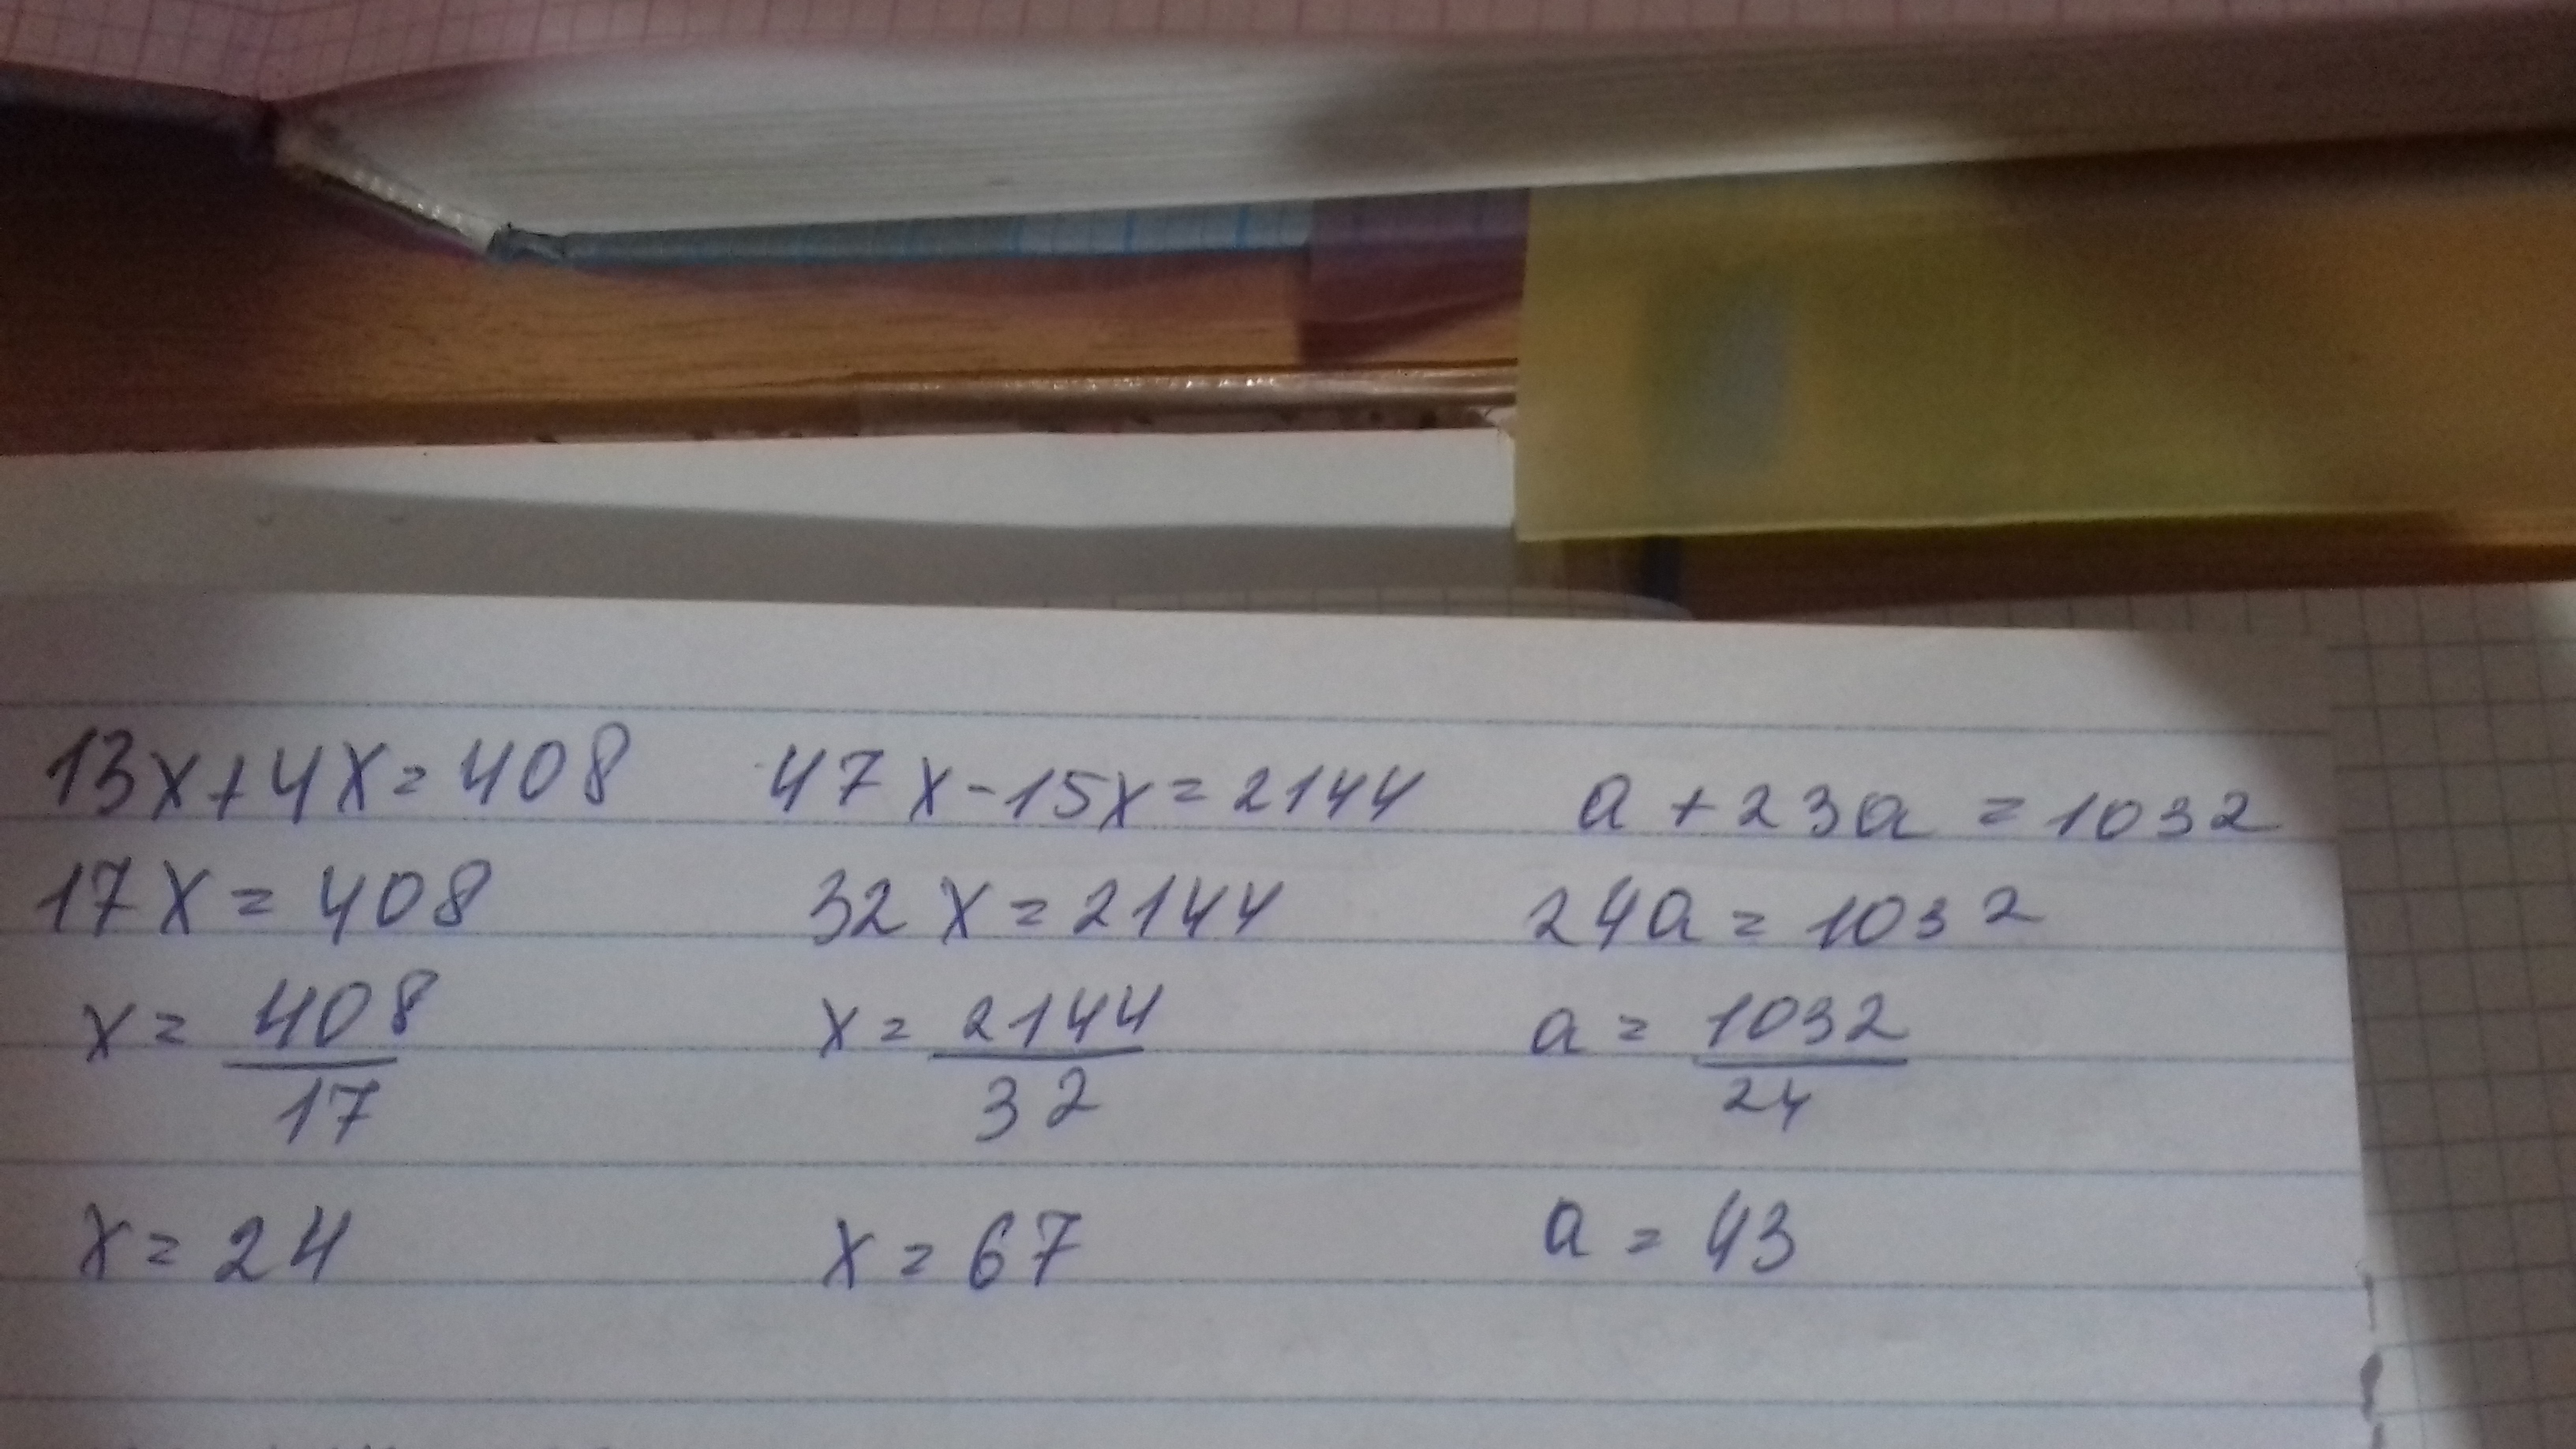 13x+4x=408
17x=408
x=408/17
x=24
47x-15x=2144
32x=2144
x=2144/32
x=67
a+23a=1032
24a=1032
a=1032/24
a=43